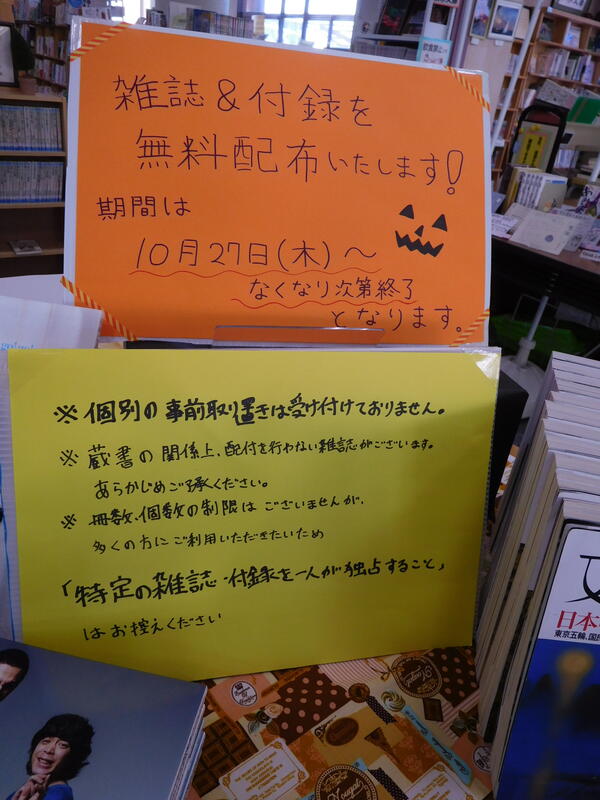 雑誌&付録を
無料配布いたします!
期間は
10月27日(木)～
なくなり次第終了
となります。
※個別の事前取り置きは受け付けておりません。
※蔵書の関係上、配付を行わない雑誌がございます。
あらかじめご了承ください。
※冊数、個数の制限はございませんが、
多くの方にご利用いただきたいため
「特定の雑誌・付録を一人が独占すること」
はお控えください
日本
東京五輪、国民